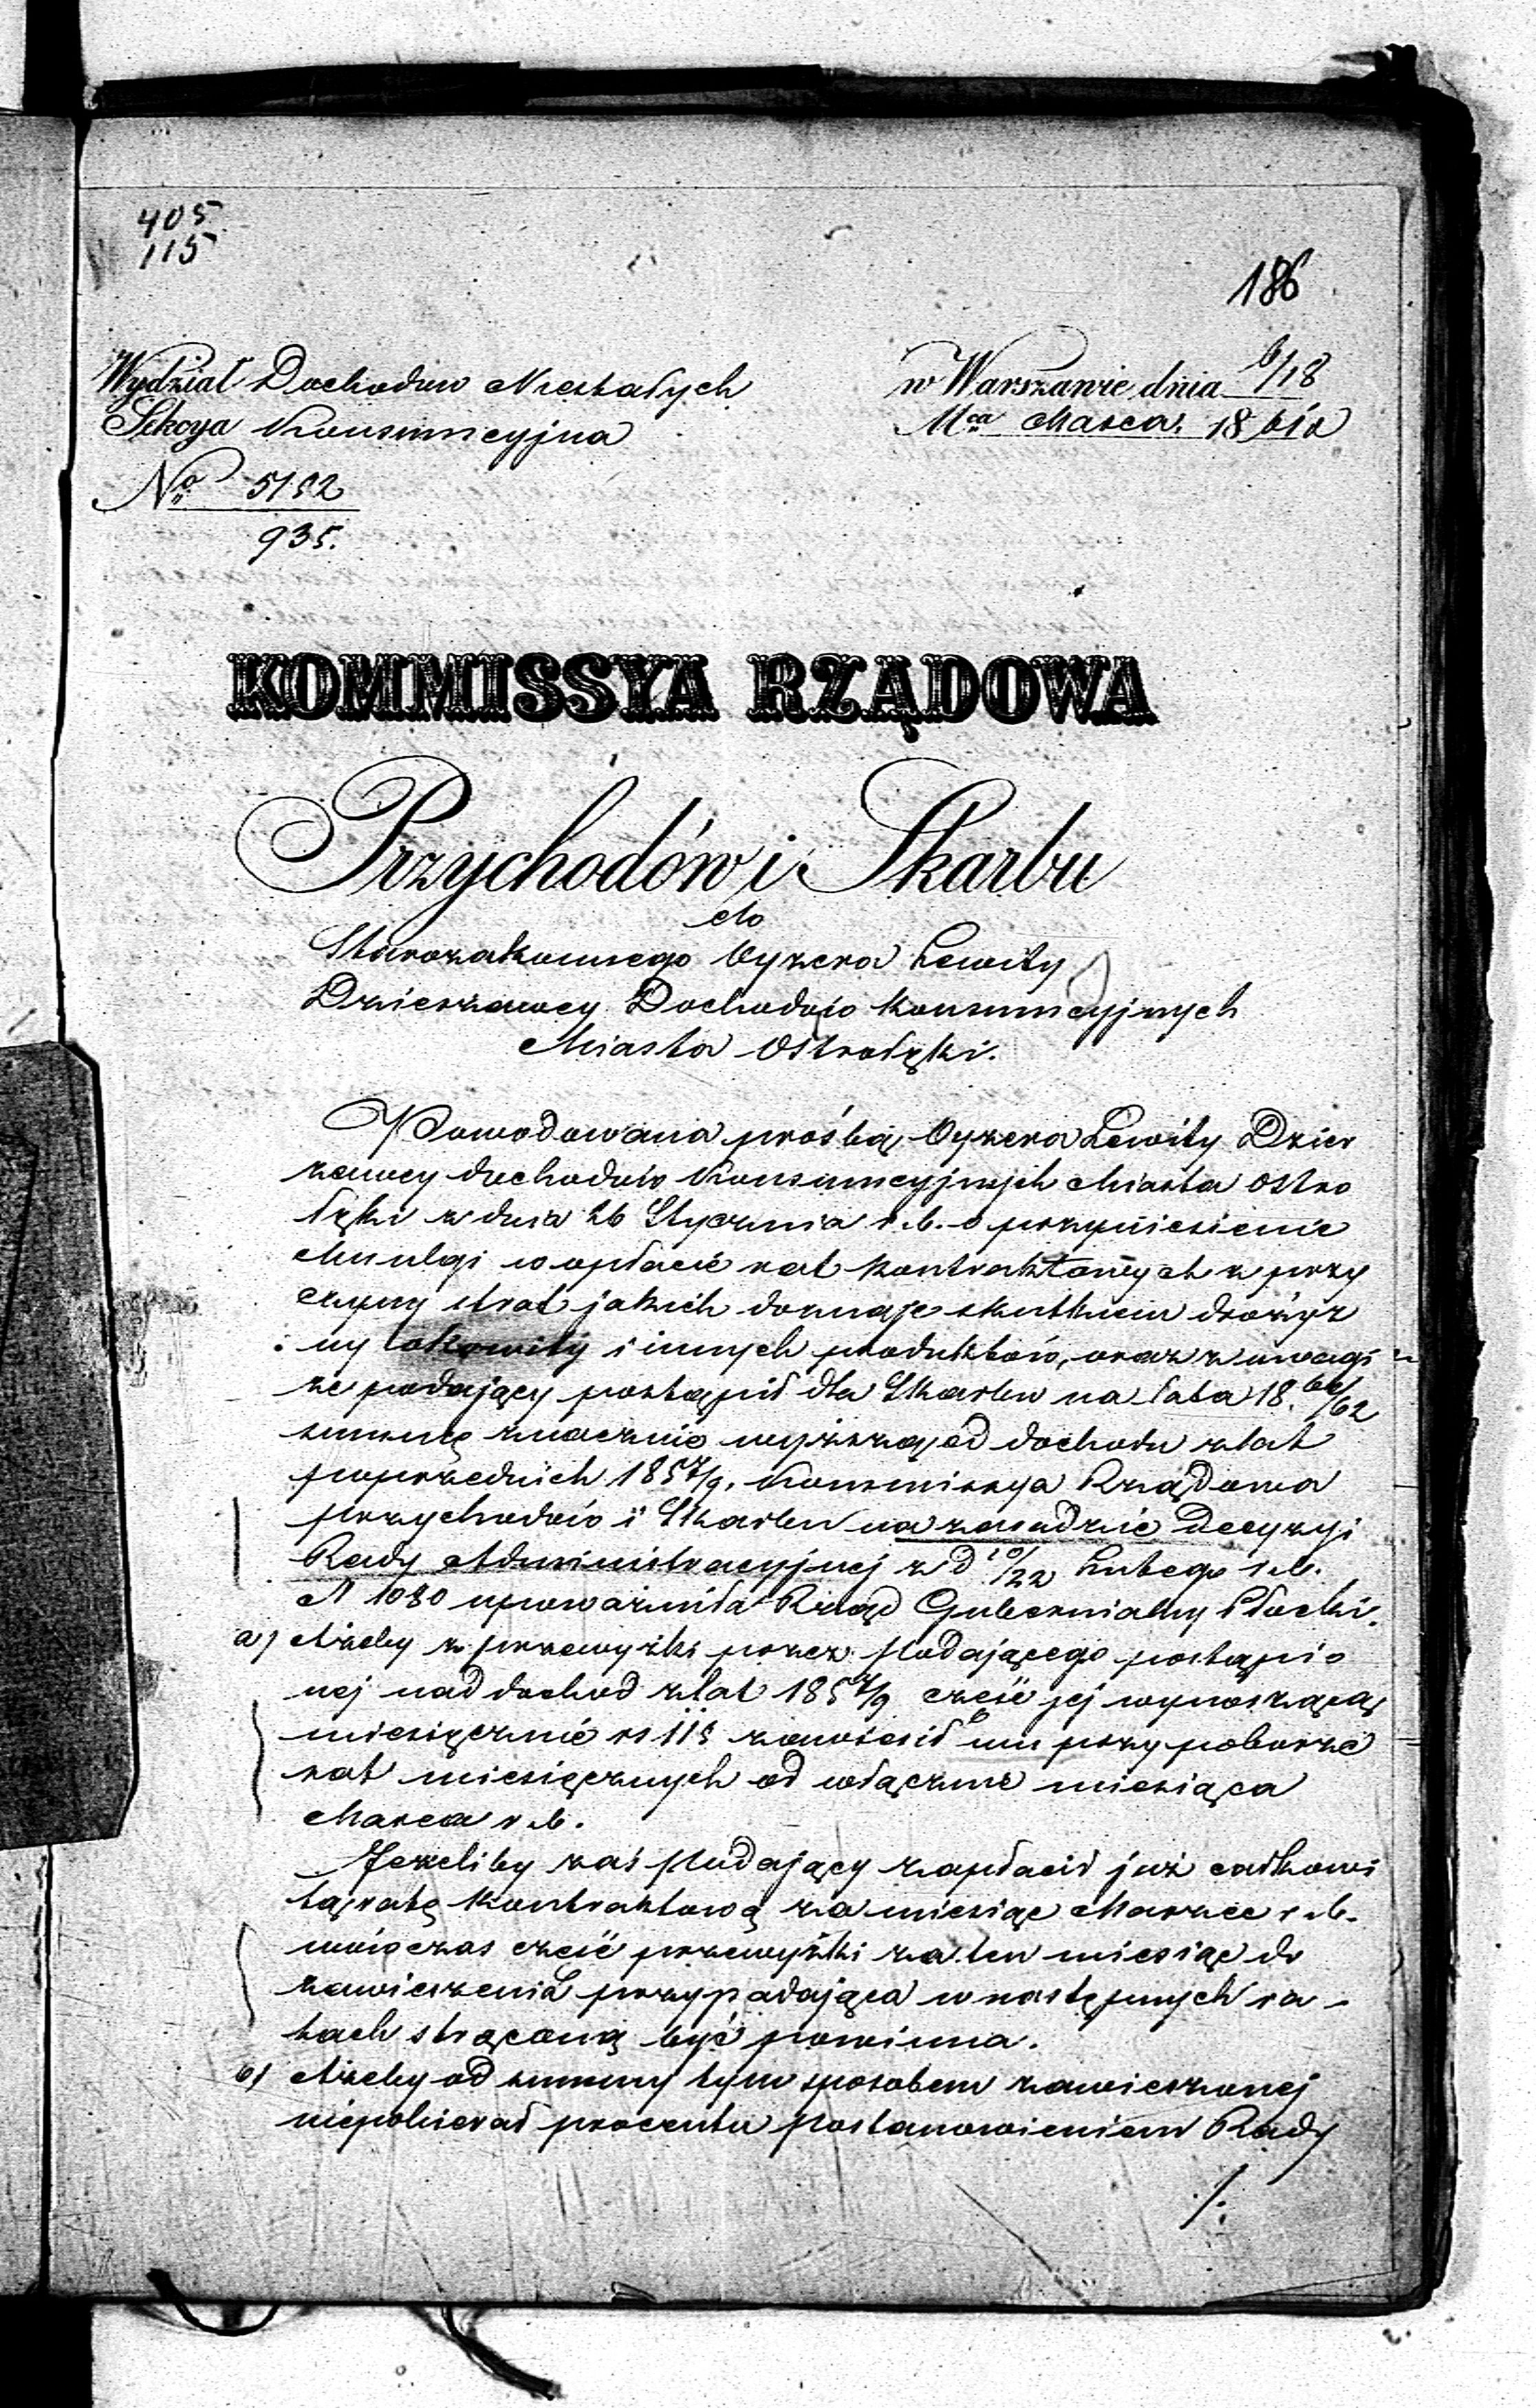 405
115
186
Wydział Dochodów Niestałych
Sekcya Konsumcyjna
w Warszawie dnia 6/18
Mca Marca 1861 r
No 5192
935.
KOMMISSYA RZĄDOWA
Przychodów i Skarbu
do
Starozakonnego Oyzera Lewity
Dzierżawcy Dochodów Konsumcyjnych
Miasta Ostrołęki.
Powodowana prośbą Oyzera Lewity Dzier
żawcy dochodów Konsumcyjnych Miasta Ostro
łęki z dnia 26 Stycznia r. b. o przyniesienie
Mu ulgi w opłacie rat kontraktowych z przy
czyny strat jakich doznaje skutkiem drożyz
ny okowity i innych produktów, oraz z uwagi
że podający postąpił dla Skarbu na lata 18 60/62
summę znacznie wyższą od dochodu z lat
poprzednich 1857/9, Kommissya Rządowa
Przychodów i Skarbu na zasadzie Decyzyi
Rady Administracyjnej z d 10/22 Lutego r. b.
N 1080 upoważniła Rząd Gubernialny Płocki,
a) Ażeby z przewyżki przez Podającego postąpio
nej nad dochod z lat 1857/9 część jej wynoszącą
miesięcznie rs 115 zawiesił mu przy poborze
rat miesięcznych od włącznie miesiąca
Marca r. b.
Jeżeliby zaś Podający zapłacił już całkowi
tą ratę kontraktową za miesiąc Marzec r. b.
wówczas część przewyżki za ten miesiąc do
zawieszenia przypadająca w następnych ra
tach strąconą być powinna.
b) Ażeby od summy tym sposobem zawieszonej
niepobierał procentu Postanowieniem Rady
./.